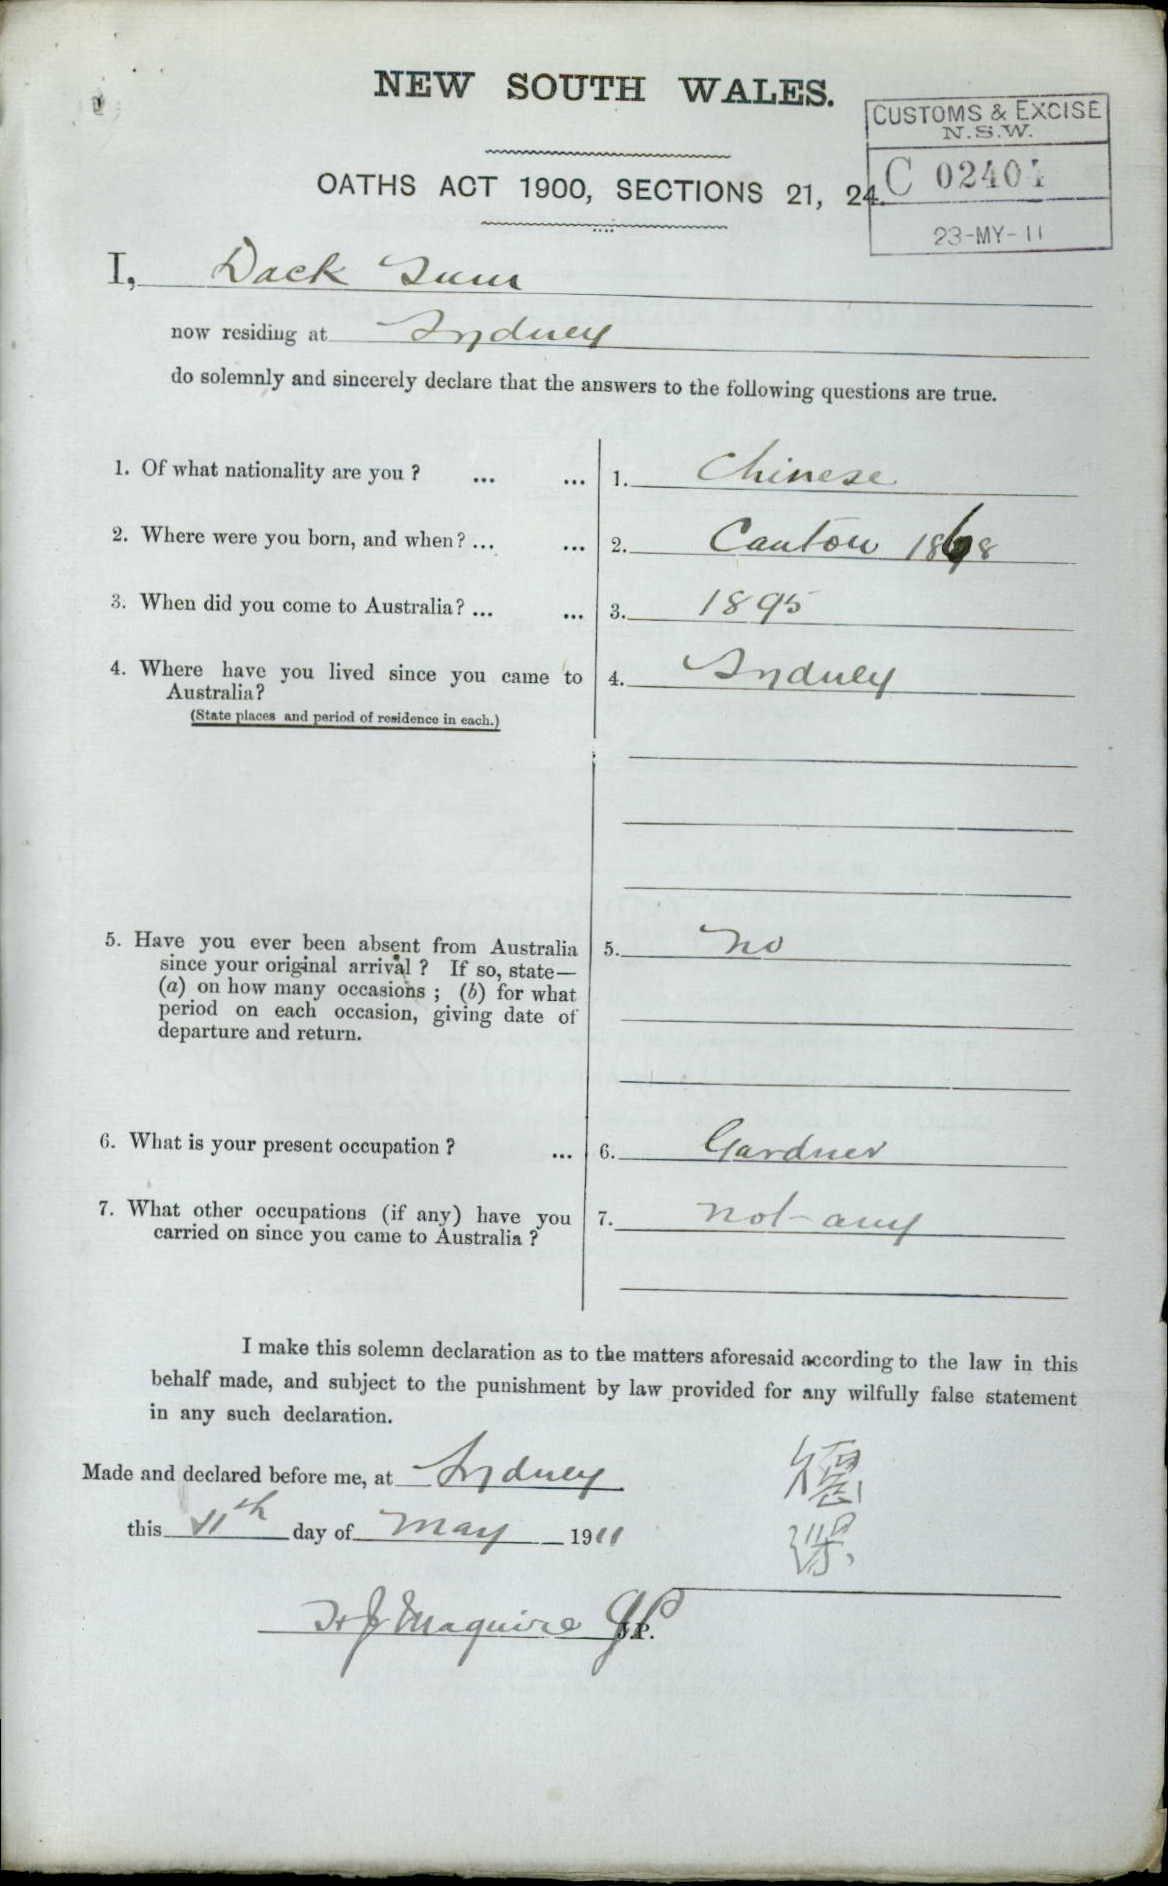 NEW SOUTH WALES.
CUSTOMS & EXCISE
N.S.W.
C 02401
23-MY-11
OATHS ACT 1900, SECTIONS 21, 24.
I, Dack Sum
now residing at Sydney
do solemnly and sincerely declare that the answers to the following questions are true.
1. Of what nationality are you ? ... ... 1. Chinese
2. Where were you born, and when? ... ... 2. Canton 1868
3. When did you come to Australia? ... ... 3. 1895
4. Where have you lived since you came to 4. Sydney
Australia?
(State places and period of residence in each.)
5. Have you ever been absent from Australia 5. No
since your original arrival ? If so, state—
(a) on how many occasions ; (b) for what
period on each occasion, giving date of
departure and return.
6. What is your present occupation ? ... 6. Gardner
7. What other occupations (if any) have you 7. not any
carried on since you came to Australia ?
I make this solemn declaration as to the matters aforesaid according to the law in this
behalf made, and subject to the punishment by law provided for any wilfully false statement
in any such declaration.
Made and declared before me, at Sydney
this 11th day of May 1911
Maguire JP
J.P.